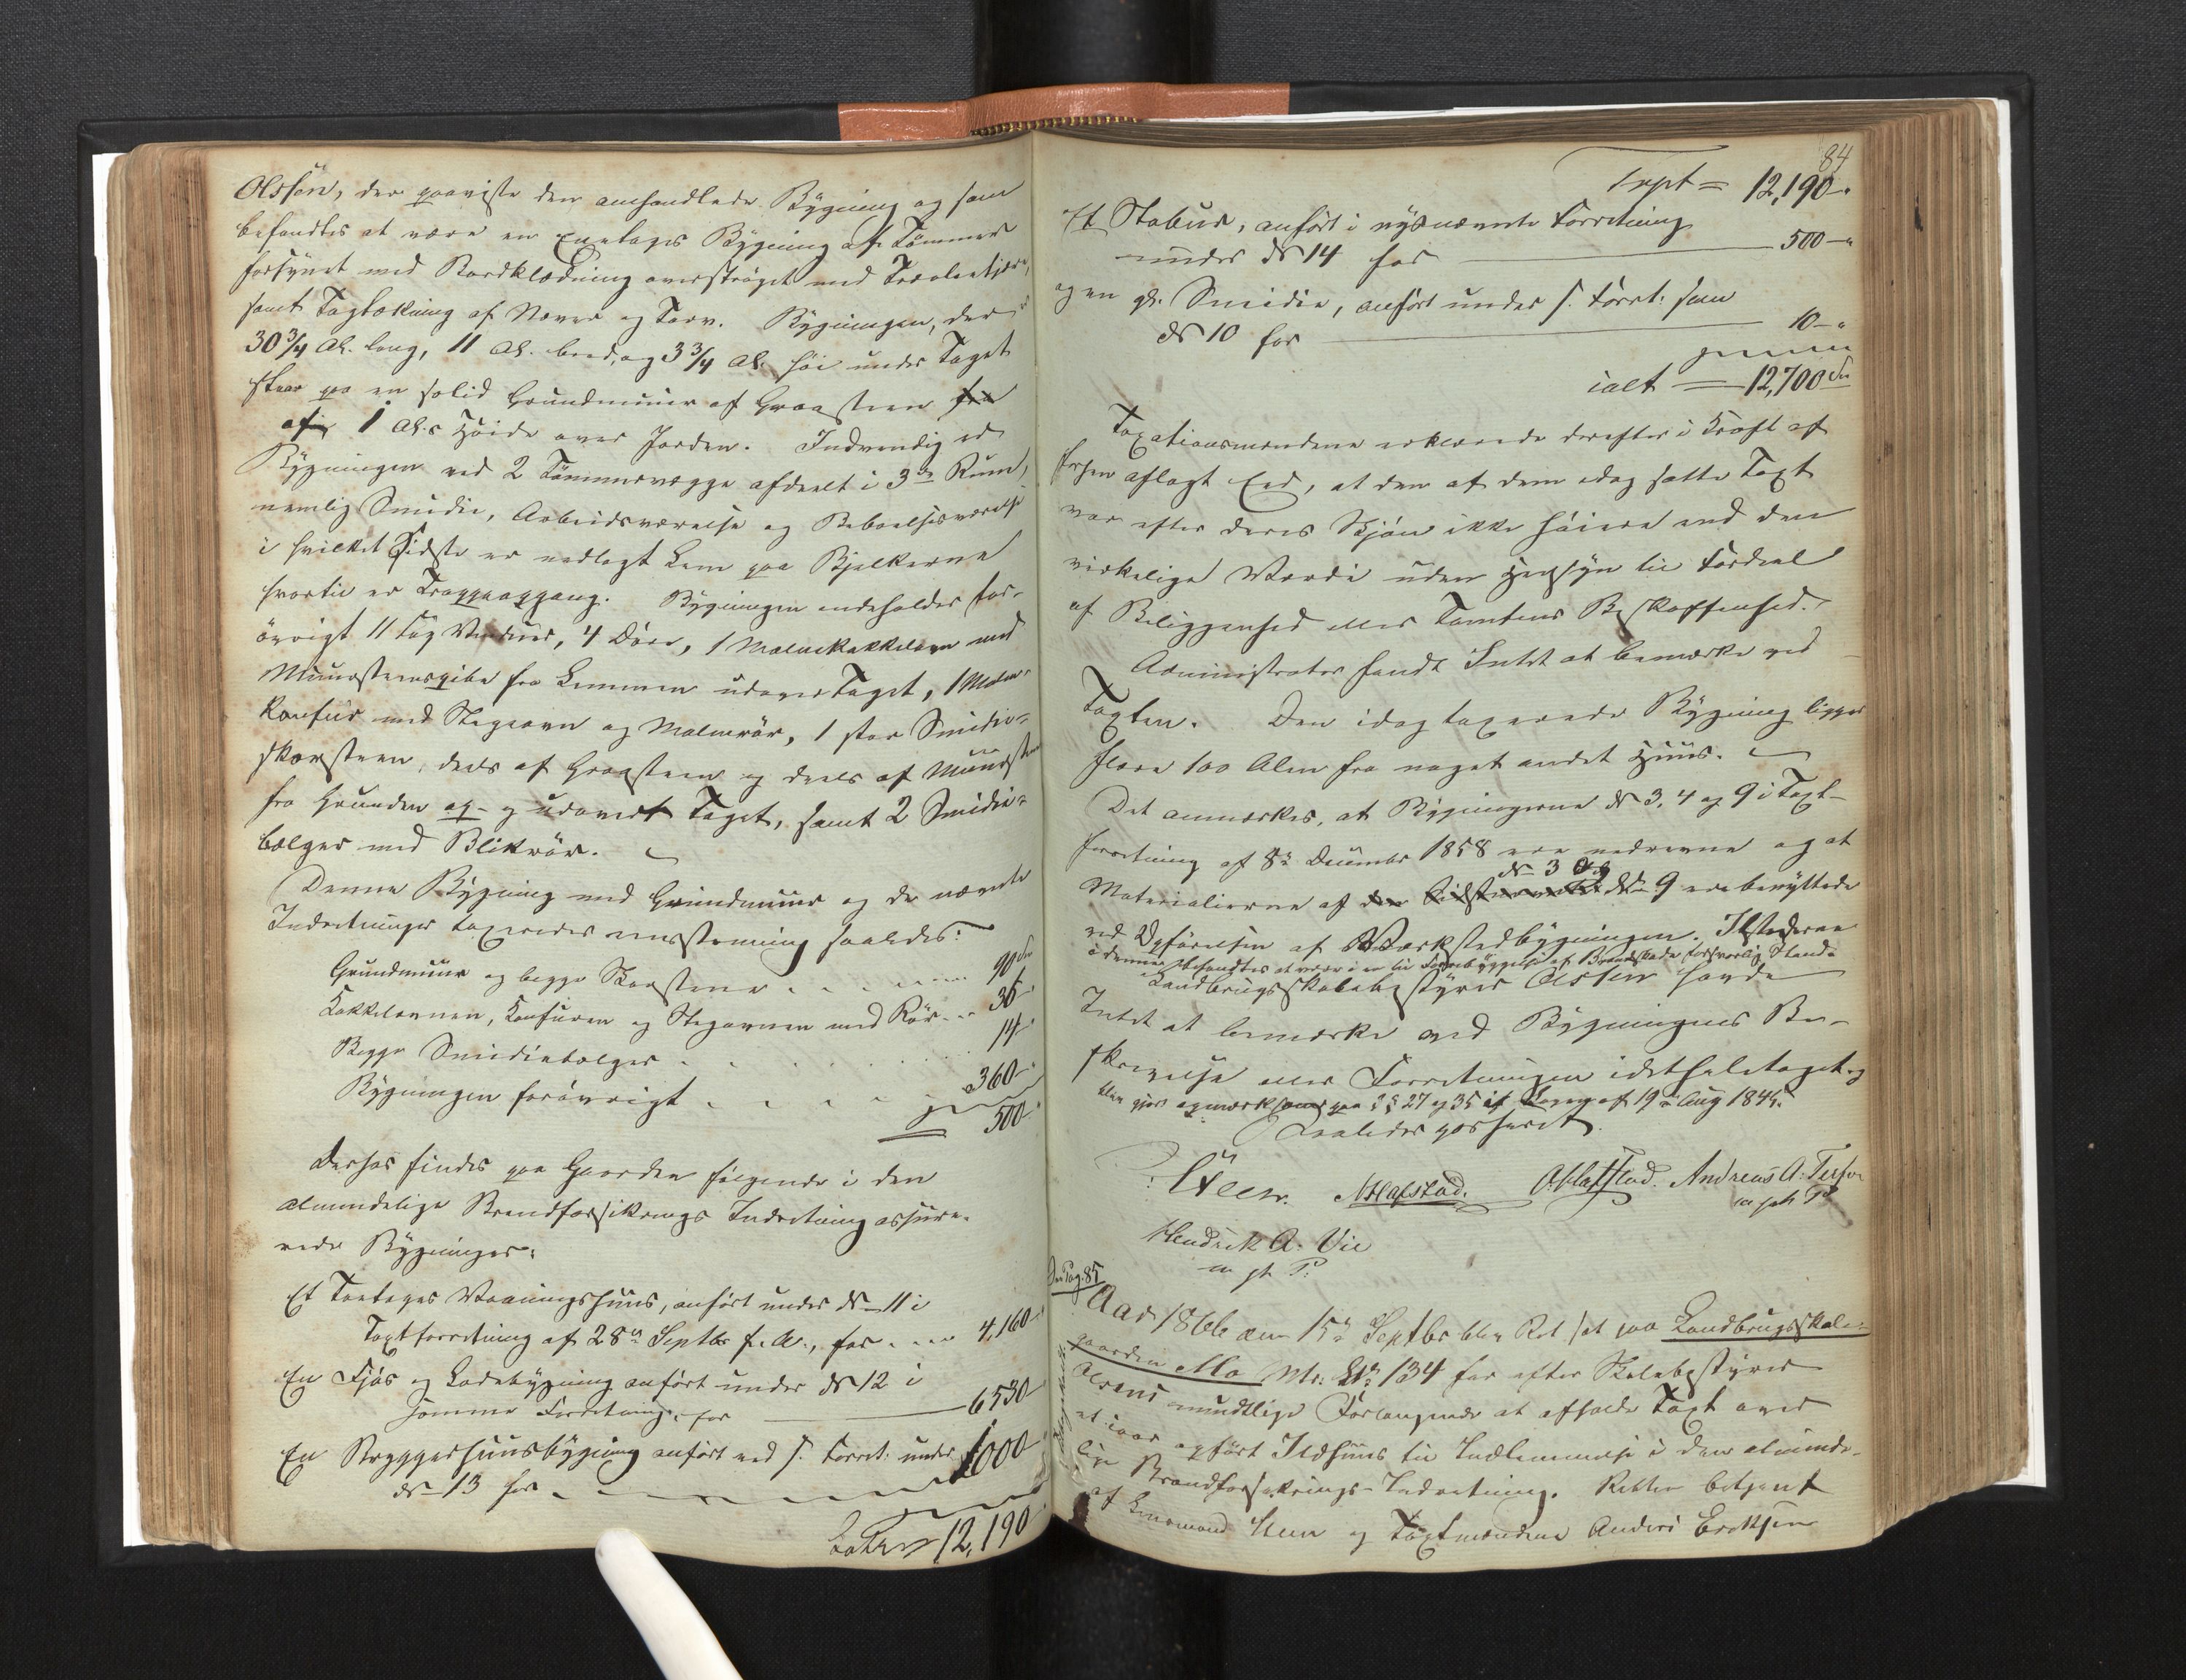 Olssøn, der paaviste den anhandlede Bygning og som
befandtes at være en Eenetages Bygning af Tømmer
forsynet med Bordklædning overstrøget med Træoletjære,
samt Tagtækning af Næver og Torv. Bygningen, der er
30 3/4 Al. lang, 11 Al. bred, og 3 3/4 Al. høi under Taget
staar paa en solid Grundmuur af Graasteen
af 1 Al.s Høide over Jorden. Indvendig er
Bygningen ved 2 Tømmervægge afdeelt i 3de Rum,
nemlig Smidie, Arbeidsværelse og Beboelsesværelse
i hvilket Sidste er nedlagt Lem paa Bjelkerne
hvortil er Trappeopgang. Bygningen indeholder for-
øvrigt 11 Fag Vinduer, 4 Døre, 1 Malmkakkelovn med
Muursteenspibe fra Lemmen udover Taget, 1 Malm-
komfur med Stegeovn og Malmrør, 1 stor Smidie-
skorsteen, deels af Graasteen og deels af Muursteen
fra Grunden op- og udover Taget, samt 2 Smidie-
bælger med Blikrør.
Denne Bygning med Grundmuur og de nævnte
Indretninger taxeredes eenstemmig saaledes:
Grundmuur og begge Skorstene . . . 90 Sp
Kakkelovnen, Komfuren og Stegeovnen med Rør . . 36 -
Begge Smidiebælger . . . 14 -
Bygningen forøvrigt . . . 360 -
500 -
Derhos findes paa Gaarden følgende i den
almindelige Brandforsikrings Indretning assure-
rede Bygninger:
Et Toetages Vaaningshuus, anført under No 11 i
Taxtforretning af 28de Septbr f. A., for . . . 4,160 -
En Fjøs og Ladebygning anført under No 12 i
samme Forretning, for 6530 -
En Bryggerhuusbygning anført ved s. Forret: under 1000 -
No 13 for
Latus 12,190 -
84
Trpt = 12,190 -
Et Stabur, anført i nysnævnte Forretning
under No 14 for 500 -
og en gl. Smidie, anført under s. Forret: som
No 10 for 10 -
ialt 12,700 Sp
Taxationsmændene erklærede derefter i Kraft af
forhen aflagt Eed, at den af dem idag satte Taxt
var efter deres Skjøn ikke høiere end den
virkelige Værdi uden Hensyn til Fordeel
af Beliggenhed eller Tomtens Beskaffenhed.
Administrator fandt Intet at bemærke ved
Taxten. Den idag taxerede Bygning ligger
flere 100 Alen fra noget andet Huus.
Det anmærkes, at Bygningerne No 3, 4 og 9 i Taxt-
forretning af 8de December 1858 ere nedrevne og at
No 3 og
Materialierne af den Sidstnævnte No 9 ere benyttede
ved Opførelsen af Værkstedbygningen. Ildstederne
i denne befandtes at være i en til Forebyggelse af Brandskade forsvarlig Stand.
Landbrugsskolebestyrer Olssen havde
Intet at bemærke ved Bygningens Be-
skrivelse eller Forretningen idetheletaget og
blev gjort opmærksom paa §§ 27 og 35 i Loven af 19de Aug 1845.
Saaledes passeret.
Steen. Andreas A.
Hendrik A. Vie
m. p. P.
Aar 1866 den 15de Septbr blev Ret sat paa Landbrugsskole-
gaarden Mo Mtr: No 134 for efter Skolebestyrer
Olsens mundtlige Forlangende at afholde Taxt over
et iaar opført Ildhuus til Indlemmelse i den alminde-
lige Brandforsikrings-Indretning. Retten betjent
af Lensmand Steen og Taxtmændene Anders Eriksen